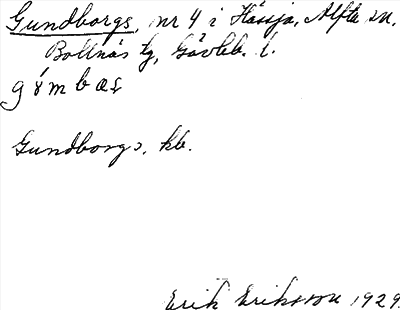 Gundborgs, nr 4 i Hässja, Alfta sn.
Bollnäs tg, Gävleb. l.
Gundborgs, kb.
Erik Eriksson 1929.